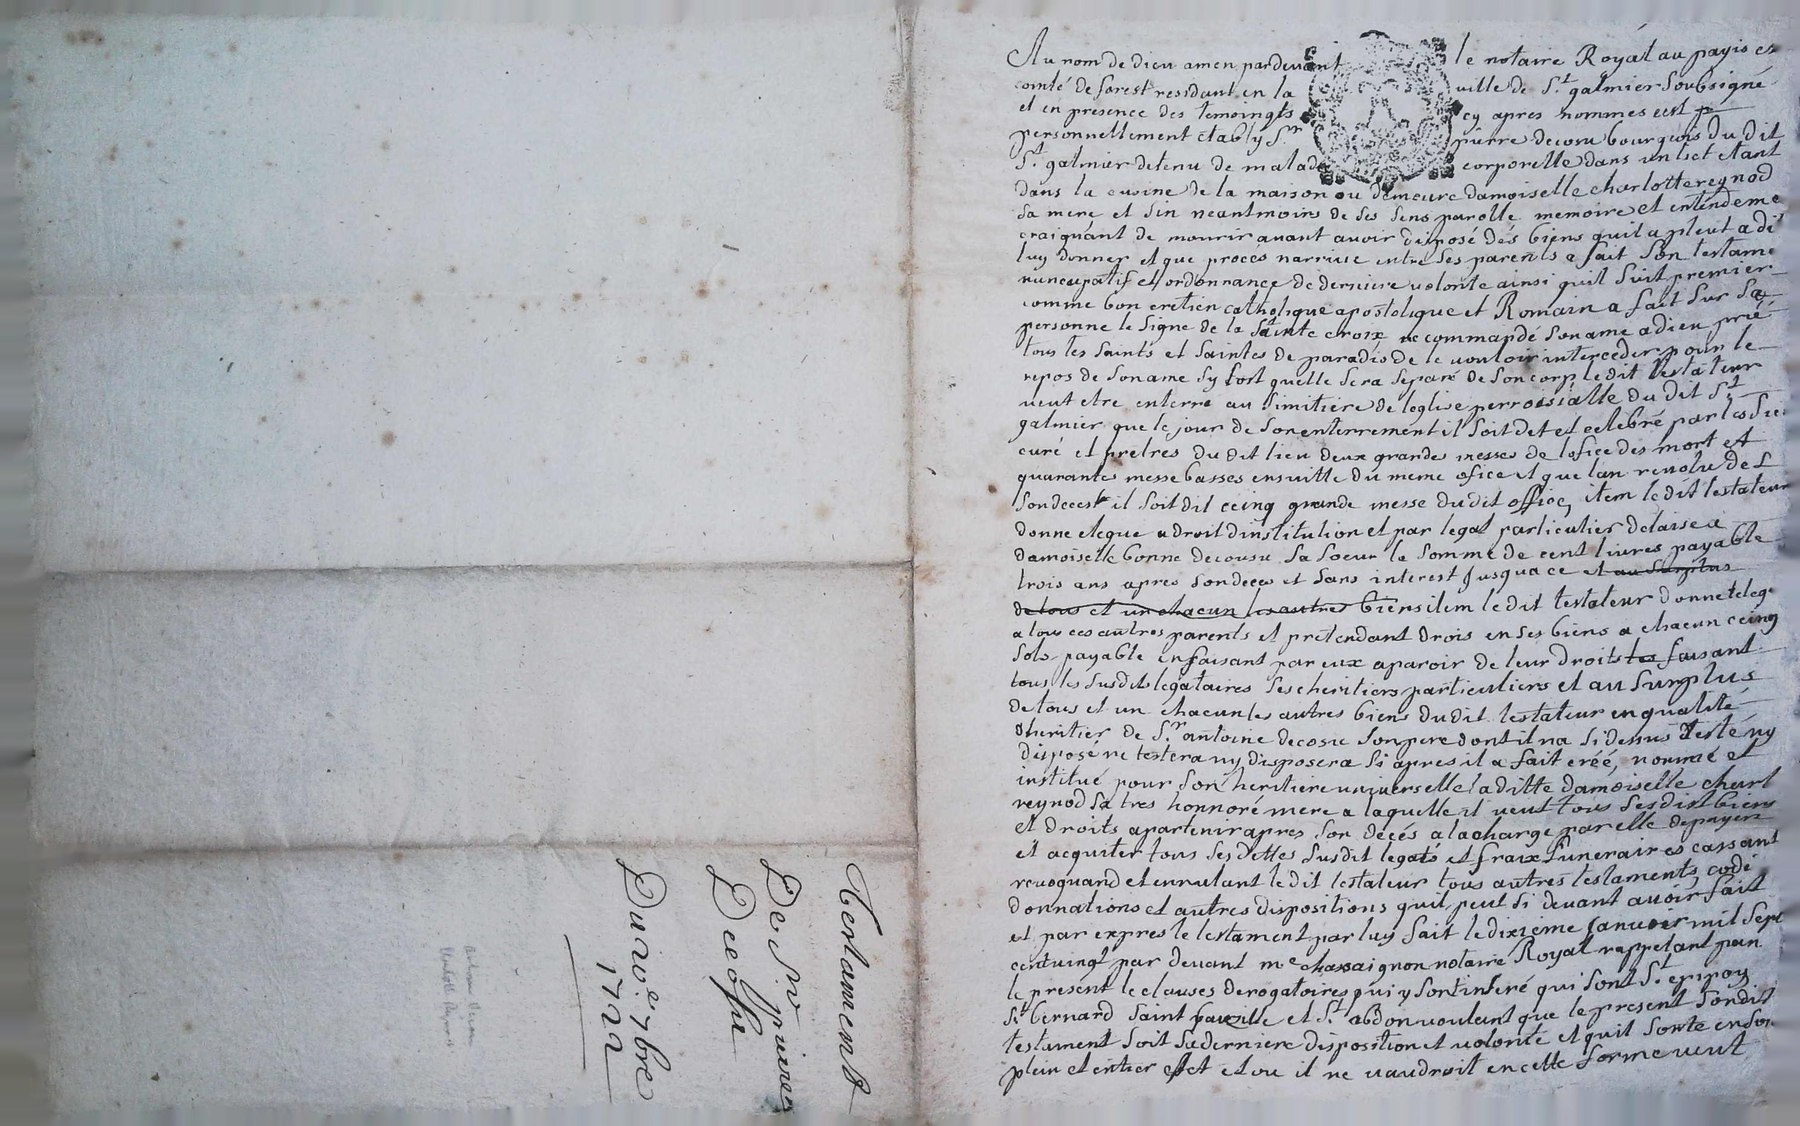 Testament
De Sr pierre
Decosu
Du 12e 7bre
1722
Au nom de dieu amen pardevant le notaire Royal au payis et
comté de forest residant en la ville de St galmier soubsigné
et en presence des temoingts cy apres nommes est p
personnellement etably Sr pierre decosu bourgeois du dit
St galmier detenu de maladie corporelle dans un lict etant
dans la cusine de la maison ou demeure damoiselle charlotte reynod
sa mere et sin neantmoins de ses sens parolle memoire et entendeme
craignant de mourir avant avoir disposé des biens quil a pleut a di
luy donner et que proces narrive entre ses parents a fait son testame
nuncupatif et ordonnance de derniere volonte ainsi quil suit premier
comme bon cretien catholique apostolique et Romain a fait sur sa
personne le signe de la sainte croix recommandé son ame a dieu prié
tous les saints et saintes de paradis de le vouloir interceder pour le
repos de son ame sy tost quelle sera separé de son corp le dit testateur
veut etre enterre au simitiere de leglise perroissialle du dit St
galmier que le jour de son enterrement il soit det et celebré par les sie
curé et prêtres du dit lieu deux grandes messes de lofice des mort et
quarantes messe basses ensuitte du meme ofice et que lan revolu de
son decest il soit dit ceinq grande messe du dit office, item le dit testateur
donne elegue a droit dinstitution et par legat particulier delaise a
damoiselle bonne decousu sa soeur la somme de cent livres payable
trois ans apres son deces et sans interest jusqua ce et au surplus
de tous et un chacun les autres biens item le dit testateur donne eleg
a tous ces autres parents et pretendant drois en ses biens a chacun ceinq
sols payable en faisant par eux aparoir de leur droits les faisant
tous les susdits legataires ses heritiers particuliers et au surplus
de tous et un chacun les autres biens du dit testateur en qualité
dheritier de Sr antoine decosu son pere dont il na si dessus testé ny
disposé ne testera ny disposera si apres il a fait créé, nommé et
institué pour son heritiere universelle la ditte damoiselle charl
reynod sa tres honnoré mere a laquelle il veut tous ses dist biens
et droits apartenir apres son décés a la charge par elle de payer
et acquiter tous ses dettes susdit legats et fraix funeraires cassant
revoquand et annulant le dit testateur tous autres testaments codi
donnations et autres dispositions quil peut si devant avoir fait
et par expres le testament par luy fait le dixieme janvier mil sept
cent vingt par devant me chassaignon notaire Royal rappelant pan
le present le clauses derogatoires qui y sont inseré qui sont St
St bernard saint et St abdon voulant que le present son dit
testament soit sa derniere disposition et volonté et quil sorte en son
plein et entier efet et ou il ne vaudroit en cette forme veut